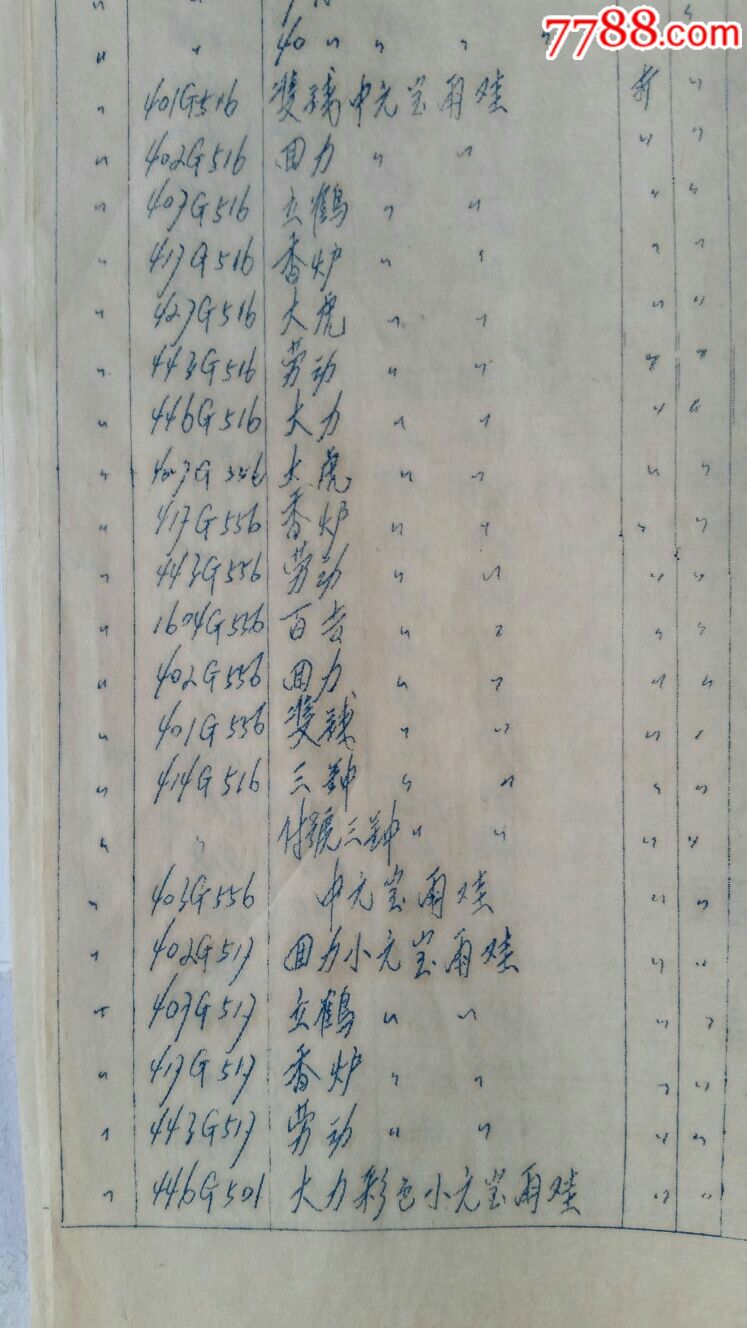 7788.com
〃 〃 40 〃 〃 〃 〃
〃 401G516 雙球中元宝雨鞋 打 〃
〃 402G516 回力 〃 〃 〃 〃
〃 407G516 立鶴 〃 〃 〃 〃
〃 417G516 香炉 〃 〃 〃 〃
〃 427G516 大虎 〃 〃 〃 〃
〃 443G516 劳动 〃 〃 〃 〃
〃 446G516 大力 〃 〃 〃 〃
〃 大虎 〃 〃 〃 〃
〃 417G556 香炉 〃 〃 〃 〃
〃 443G556 劳动 〃 〃 〃 〃
〃 1604G556 百吉 〃 〃 〃 〃
〃 402G556 回力 〃 〃 〃 〃
〃 401G556 雙球 〃 〃 〃 〃
〃 414G516 三钟 〃 〃 〃 〃
〃 〃 付號三钟 〃 〃 〃 〃
〃 403G556 中元宝雨鞋 〃 〃
〃 402G517 回力小元宝雨鞋 〃 〃
〃 407G517 立鶴 〃 〃 〃 〃
〃 417G517 香炉 〃 〃 〃 〃
〃 443G517 劳动 〃 〃 〃 〃
〃 446G501 大力彩色小元宝雨鞋 〃 〃